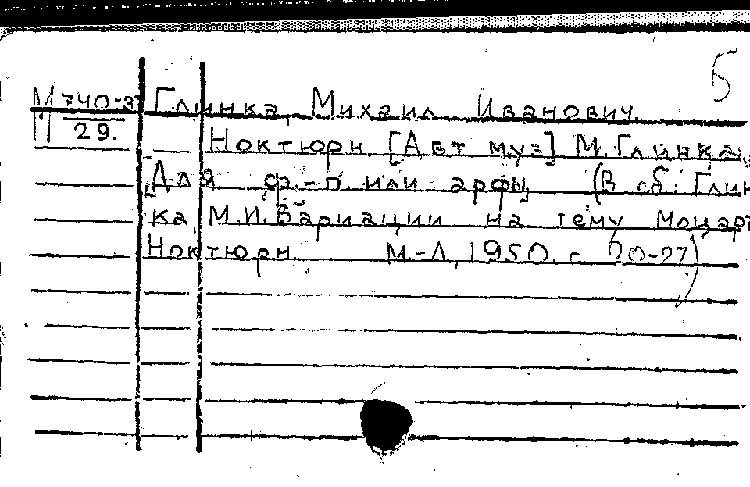 5
М 740-3 Глинка, Михаил Иванович.
29.
Ноктюрн [Авт муз] М. Глинка,
[Для ф.-п. или арфы] (В сб.: Глин
ка М.И. Вариации на тему Моцарт
Ноктюрн М.-Л, 1950. с 20-27)